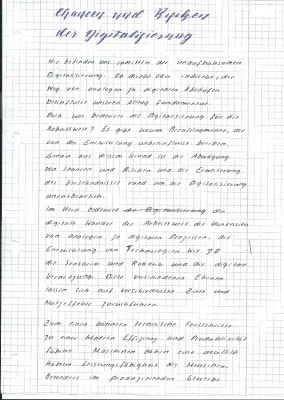 Chancen und Risiken
der Digitalisierung
Wir befinden uns inmitten der unaufhaltsamen
Digitalisierung. Ob direkt oder indirekt, der
Weg von analogen zu digitalen Abläufen
beeinflusst unseren Alltag fundamental.
Doch was bedeutet die Digitalisierung für die
Arbeitswelt? Es gibt kaum Berufszweige, die
von der Entwicklung unbeeinflusst bleiben.
Genau aus diesem Grund ist die Abwägung
von Chancen und Risiken und die Erweiterung
des Verständnisses rund um die Digitalisierung
unentbehrlich.
Im Kern bedeutet der
digitale Wandel der Arbeitswelt die Konversion
von analogen zu digitalen Prozessen, die
Entwicklung von Technologien wie
die Sensorik und Robotik und die digitale
Vernetzung. Diese verschiedenen Ebenen
lassen sich auf verschiedenste Ziele und
Nutzeffekte zurückführen.
Zum einen können technische Fortschritte
zu einer höheren Effizienz und Produktivität
führen. Maschinen haben eine deutlich
höhere Leistungsfähigkeit als Menschen.
Besonders im produzierenden Gewerbe